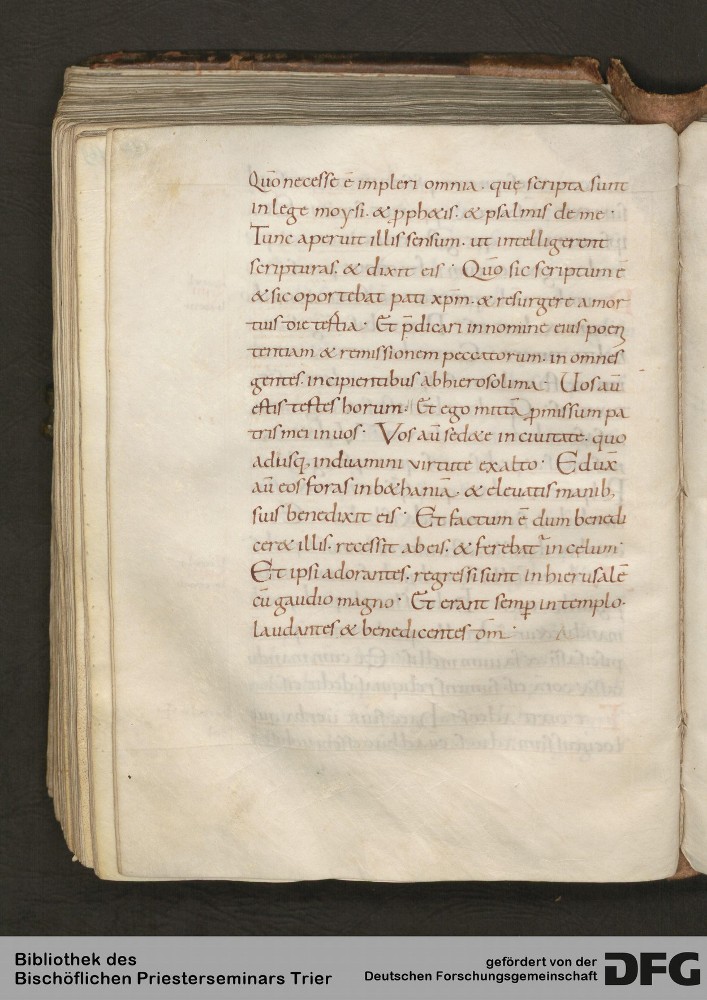 Qūo necesse ē impleri omnia. que scripta sunt
in lege moysi. & ꝓph&is. & psalmis de me.
Tunc aperuit illis sensum. ut intelligerent
scripturas. & dixit eis. Qūo sic scriptum ē
& sic oportebat pati xp̄m. & resurgere a mor
tuis die tertia. Et p̄dicari in nomine eius poeni
tentiam & remissionem peccatorum. in omnes
gentes. incipientibus ab hierosolima. Uos aū
estis testes horum. Et ego mittā ꝓmissum pa
tris mei in uos. Vos aū sed&e in ciuitate. quo
adusq. induamini virtute ex alto. Eduxˉ
aū eos foras in b&haniā. & eleuatis manib;
suis benedixit eis. Et factum ē dum benedi
cer& illis. recessit ab eis. & ferebatur in celum.
Et ipsi adorantes. regressi sunt in hierusalē
cū gaudio magno. Et erant semꝑ in templo.
laudantes & benedicentes dm̄.
Bibliothek des
Bischöflichen Priesterseminars Trier
gefördert von der
Deutschen Forschungsgemeinschaft
DFG